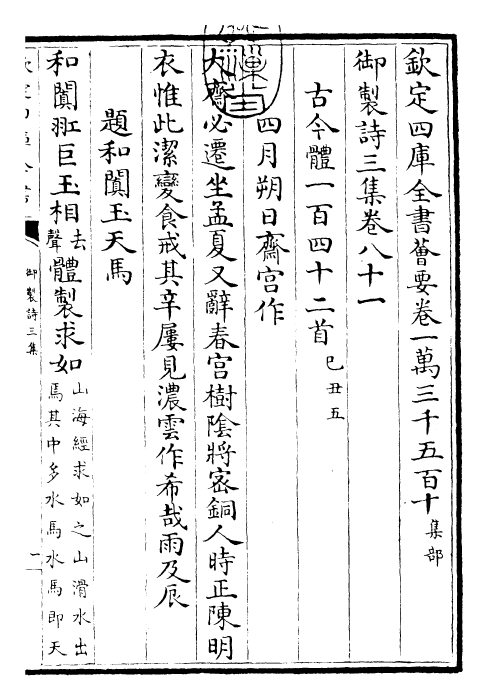 欽定四庫全書薈要卷一萬三千五百十 集部
御製詩三集卷八十一
古今體一百四十二首 己丑五
四月朔日齋宫作
大齋必遷坐孟夏又辭春宫樹陰將宻銅人時正陳明
衣惟此潔變食戒其辛屢見濃雲作希哉雨及辰
題和闐玉天馬
和闐㺿巨玉相去聲體製求如山海經求如之山滑水出馬其中多水馬水馬即天
御製詩三集
一